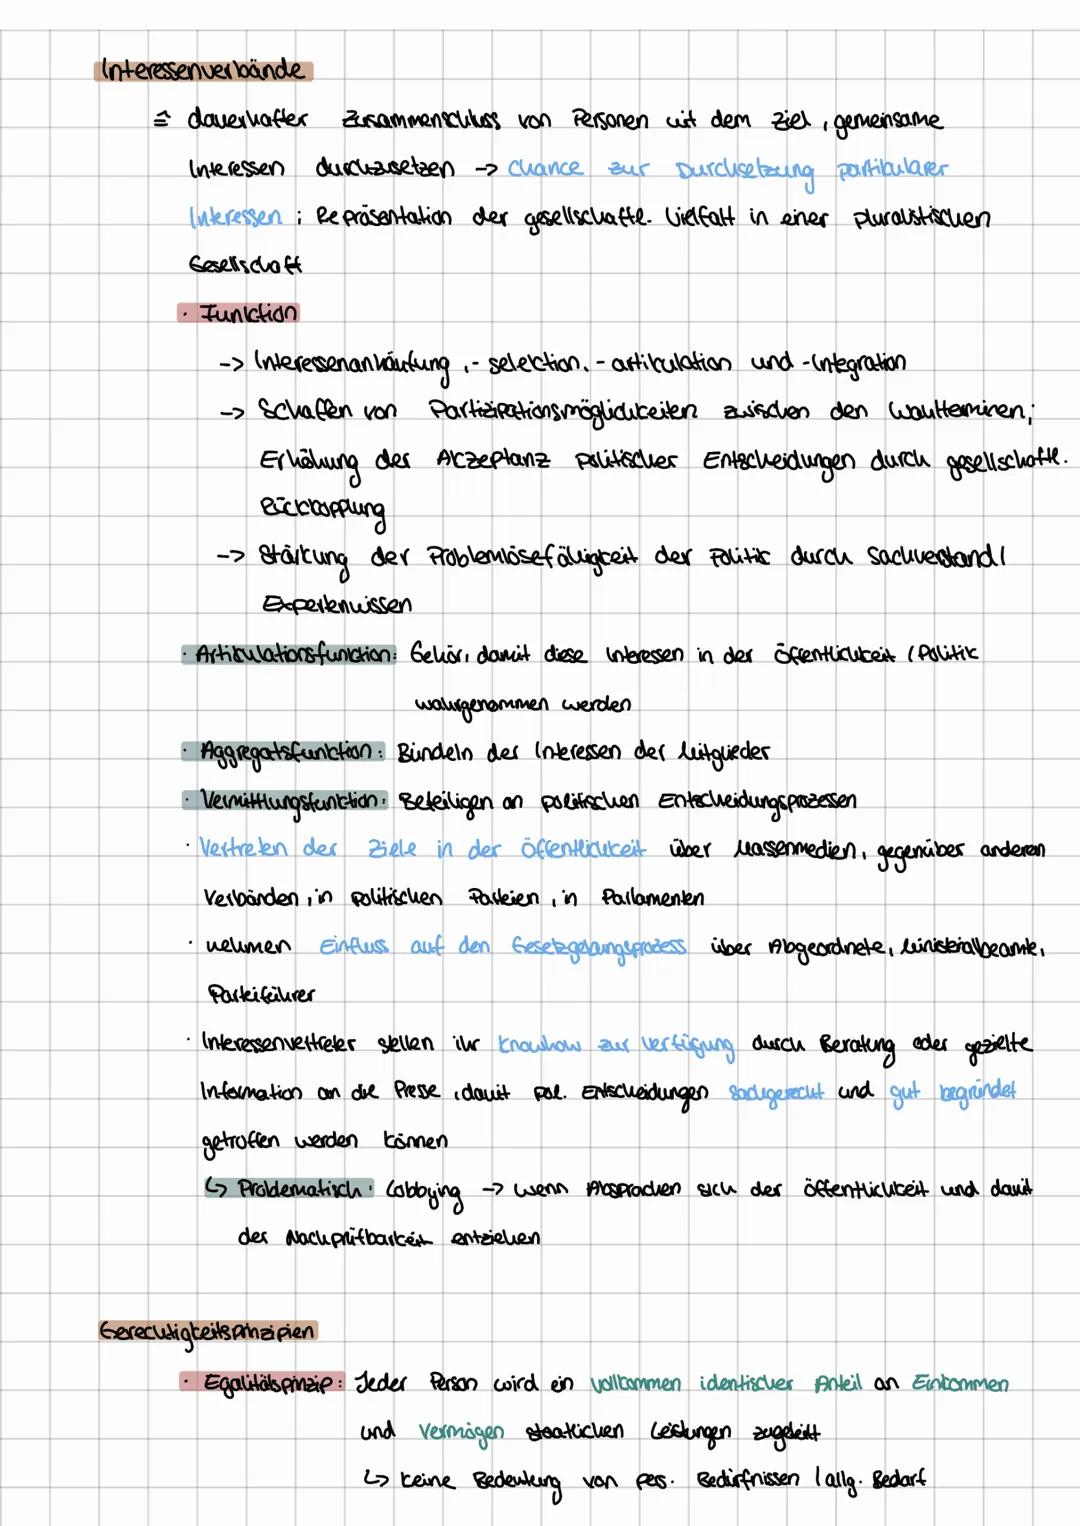 Interessenverbände
≙ dauerhafter Zusammenschluss von Personen mit dem Ziel, gemeinsame
Interessen durchzusetzen -> Chance zur Durchsetzung partikularer
Interessen ; Repräsentation der gesellschaftl. Vielfalt in einer pluralistischen
Gesellschaft
· Funktion
-> Interessenanhäufung, - selektion, - artikulation und - Integration
-> Schaffen von Partizipationsmöglichkeiten zwischen den Wahlterminen;
Erhöhung der Akzeptanz politischer Entscheidungen durch gesellschaftl.
Rückkopplung
-> Stärkung der Problemlösefähigkeit der Politik durch Sachverstand/
Expertenwissen
· Artikulationsfunktion: Gehör, damit diese Interessen in der Öffentlichkeit / Politik
wahrgenommen werden
· Aggregatsfunktion: Bündeln der Interessen der Mitglieder
· Vermittlungsfunktion: Beteiligen an politischen Entscheidungsprozessen
· Vertreten der Ziele in der Öffentlichkeit über Massenmedien, gegenüber anderen
Verbänden, in politischen Parteien, in Parlamenten
· nehmen Einfluss auf den Gesetzgebungsprozess über Abgeordnete, Ministerialbeamte,
Parteiführer
· Interessenvertreter stellen ihr Knowhow zur Verfügung durch Beratung oder gezielte
Information an die Presse, damit pol. Entscheidungen sachgerecht und gut begründet
getroffen werden können
↳ Problematisch: Lobbying -> wenn Absprachen sich der Öffentlichkeit und damit
der Nachprüfbarkeit entziehen
Gerechtigkeitsprinzipien
· Egalitätsprinzip: Jeder Person wird ein vollkommen identischer Anteil an Einkommen
und Vermögen staatlichen Leistungen zugeteilt
↳ keine Bedeutung von pers. Bedürfnissen / allg. Bedarf